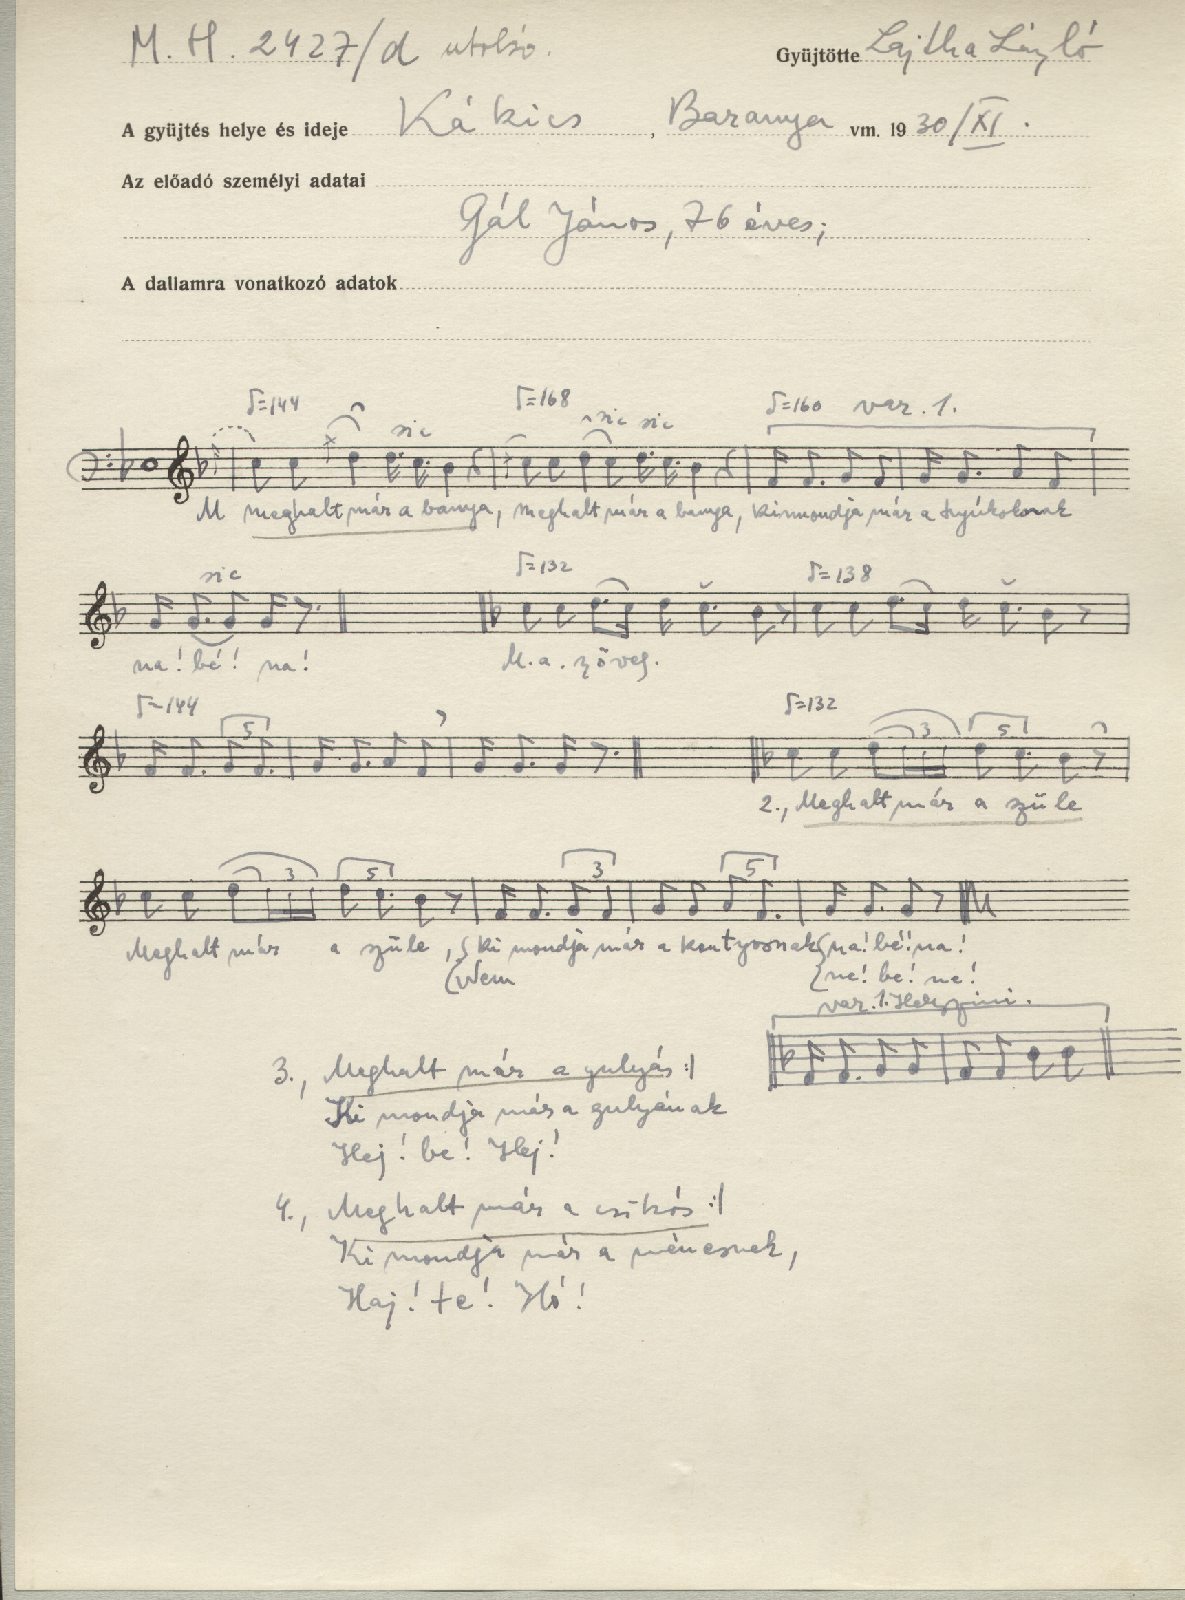 M. H. 2427/d utolsó. Gyüjtötte Lajtha László
A gyüjtés helye és ideje Kákics, Baranya vm. 1930/XI.
Az előadó személyi adatai
Gál János, 76 éves;
A dallamra vonatkozó adatok
♪=144 ♪=168 ♪=160 var. 1.
sic sic sic
M meghalt már a banya, meghalt már a banya, kinmondja már a tyúkoknak
sic ♪=132 ♪=138
na! bé! na! M. a. szöveg.
♪=144 5 ♪=132 3 5
2., Meghalt már a szüle
3 5 3 5
Meghalt már a szüle, ki mondja már a kontyosnak na! bé! na!
Nem ne! be! ne!
var. 1.
3., Meghalt már a gulyás :|
Ki mondja már a gulyának
Hej! be! Hej!
4., Meghalt már a csikós :|
Ki mondja már a ménesnek,
Haj! te! Hó!